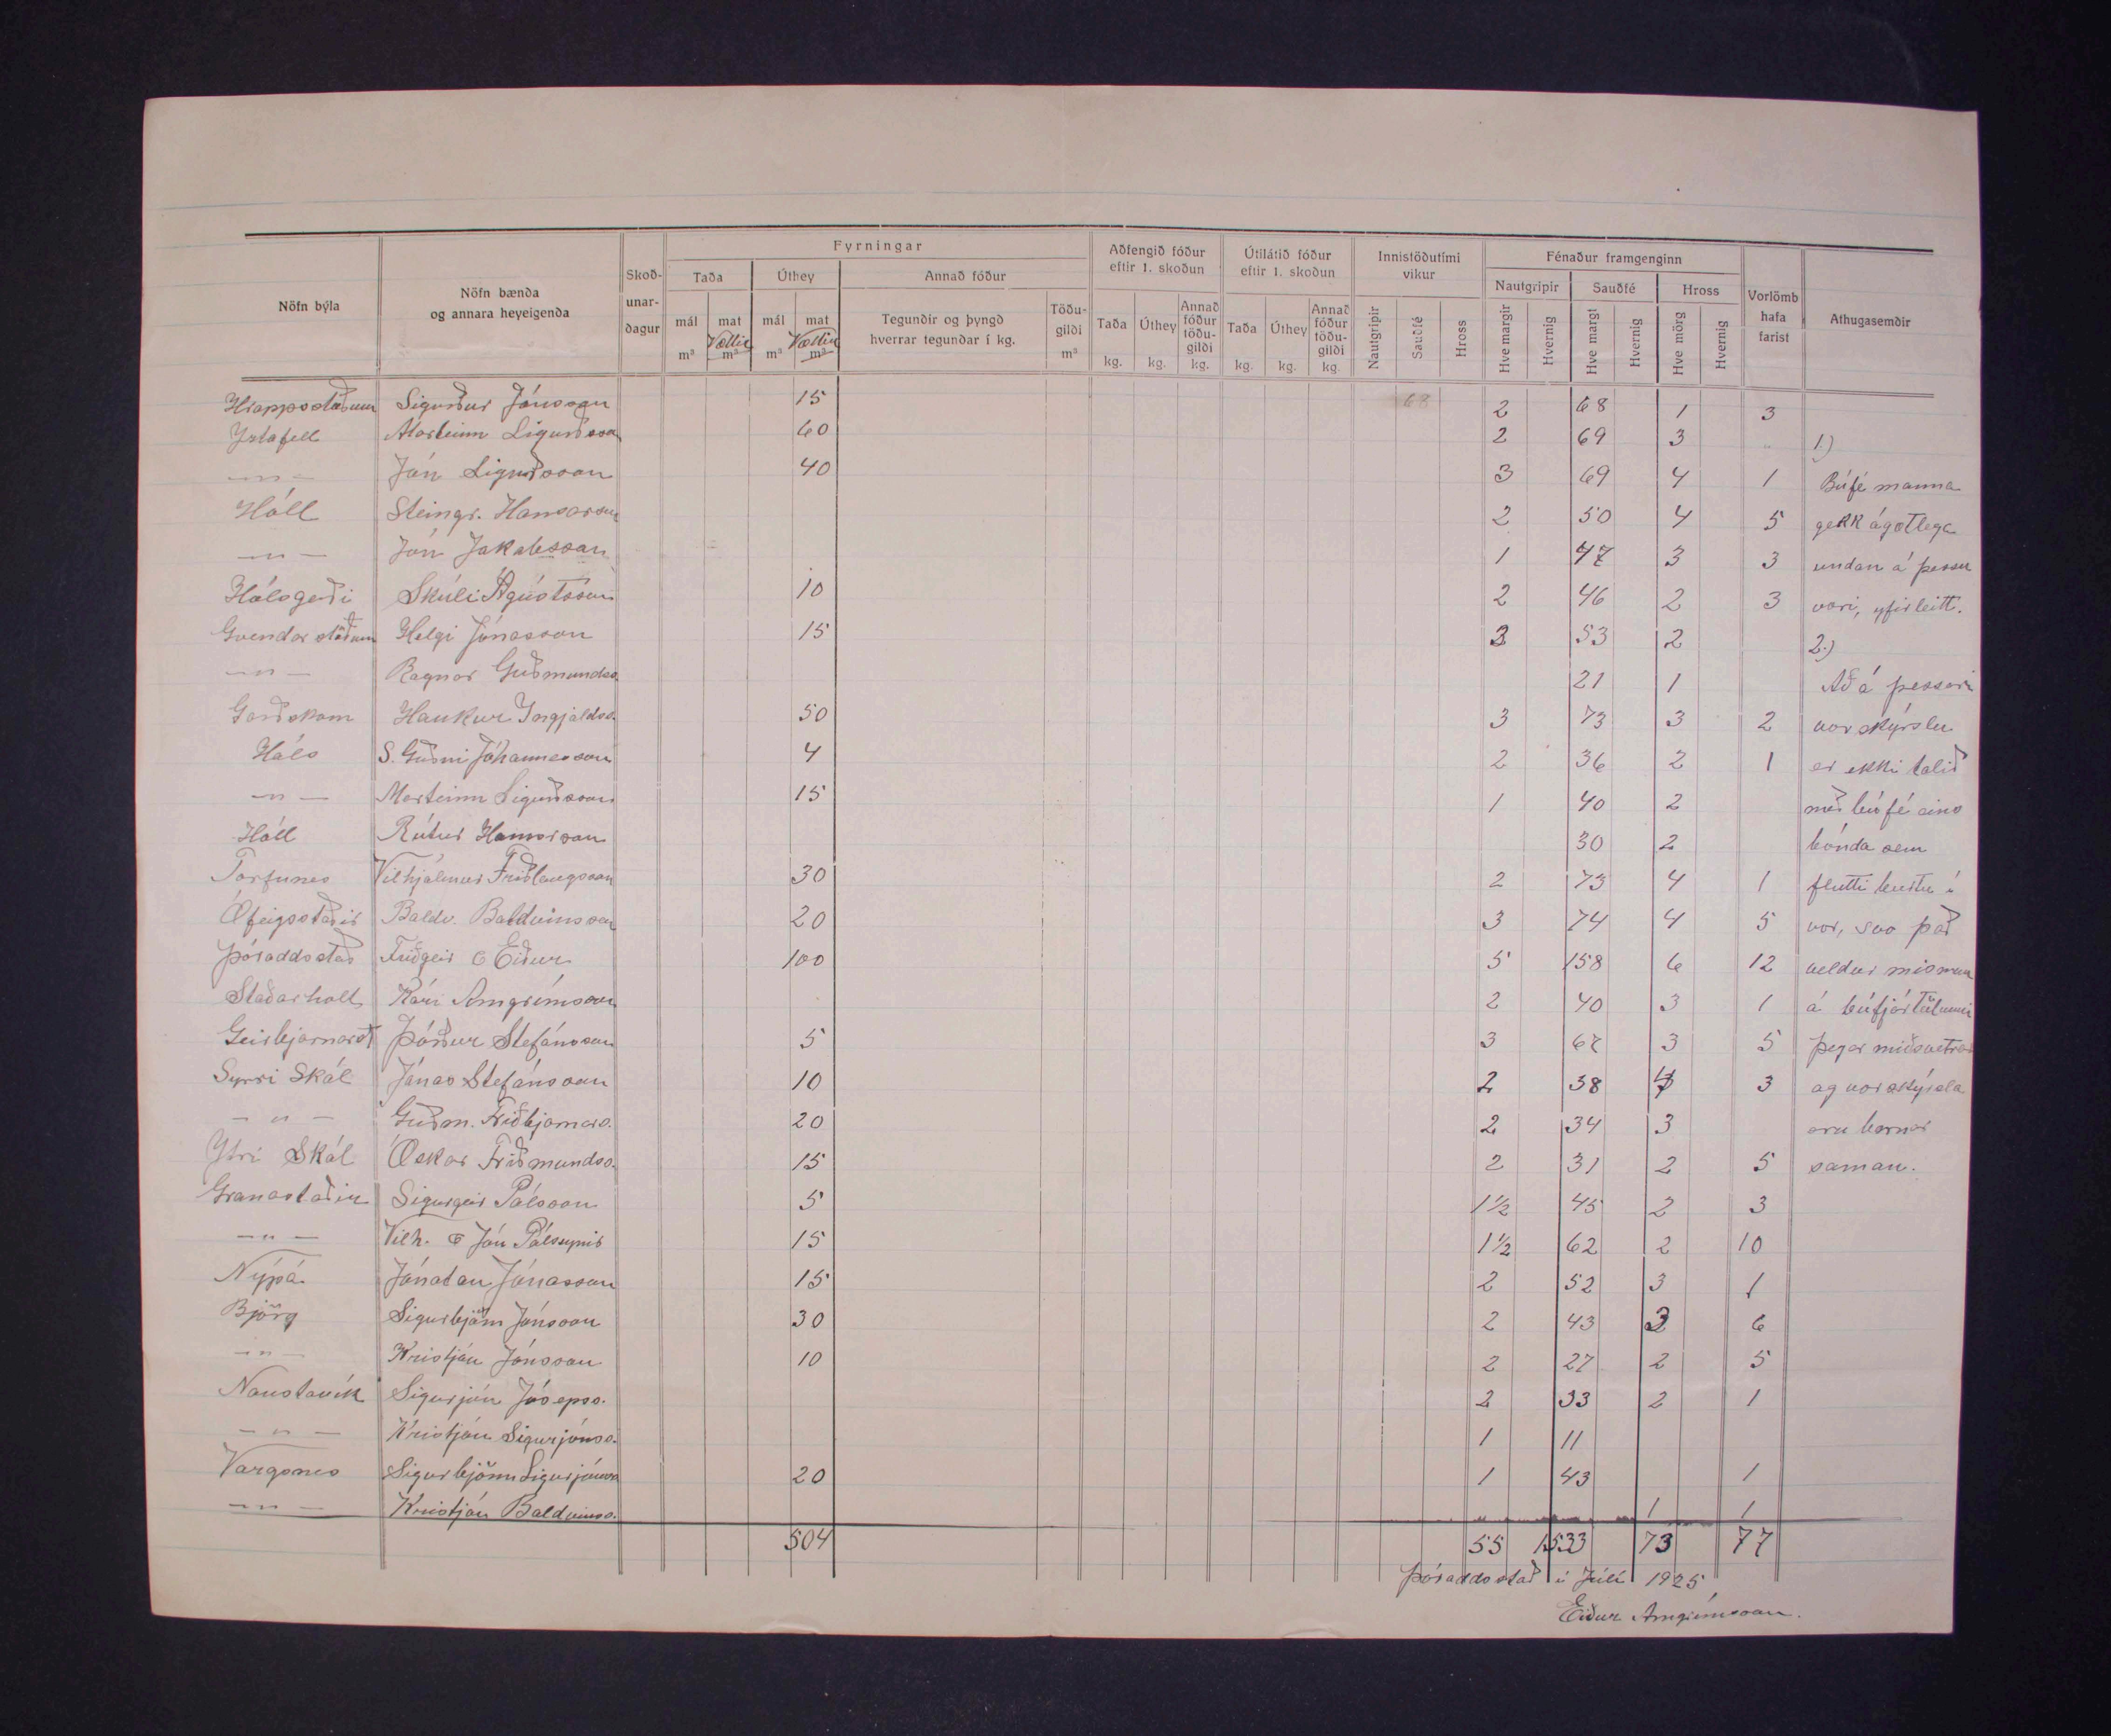 Fyrningar
Aðfengið fóður eftir 1. skoðun
Útilátið fóður eftir 1. skoðun
Innistöðutími vikur
Fénaður framgenginn
Nöfn býla
Nöfn bænda og annara heyeigenda
Skoðunardagur
Taða
Úthey
Annað fóður
Nautgripir
Sauðfé
Hross
Vorlömb hafa farist
Athugasemdir
mál m³
mat Vættir m³
mál m³
mat Vættir m³
Tegundir og þyngd hverrar tegundar í kg.
Töðugildi m³
Taða kg.
Úthey kg.
Annað fóður töðugildi kg.
Taða kg.
Úthey kg.
Annað fóður töðugildi kg.
Nautgripir
Sauðfé
Hross
Hve margir
Hvernig
Hve margt
Hvernig
Hve mörg
Hvernig
Hrappsstaðum Sigurður Jónsson 15 68 2 68 1 3
Ystafell Marteinn Sigurðsson 60 2 69 3 " 1.)
— " — Jón Sigurðsson 40 3 69 4 1 Búfé manna
Hóll Steingr. Hansson 2 50 4 5 gekk ágætlega
— " — Jón Jakobsson 1 47 3 3 undan á þessu
Hálsgerði Skúli Ágústsson 10 2 46 2 3 vori, yfirleitt.
Gvendarstöðum Helgi Jónasson 15 3 53 2 2.)
— " — Ragnar Guðmundss. 21 1 Að á þessari
Garðshorn Haukur Ingjaldss. 50 3 73 3 2 vorskýrslu
Háls S. Guðni Jóhannesson 4 2 36 2 1 er ekki talið
— " — Marteinn Sigurðsson 15 1 40 2 með búfé eins
Hóll Rútur 30 2 bónda sem
Torfunes Vilhjálmur Friðlaugsson 30 2 73 4 1 flutti burtu í
Ófeigsstaðir Baldv. Baldvinsson 20 3 74 4 5 vor, svo það
Þóroddsstað Friðgeir & Eiður 100 5 158 6 12 veldur mismun
Staðarholt Kári Arngrímsson 2 40 3 1 á búfjártölunni
Geirbjarnarst Þórður Stefánsson 5 3 67 3 5 þegar miðsvetrar
Syðri Skál Jónas Stefánsson 10 2 38 4 3 og vorskýrsla
— " — Guðm. Friðbjarnars. 20 2 34 3 eru bornar
Ytri Skál Óskar Friðmundss. 15 2 31 2 5 saman.
Granastaðir Sigurgeir Pálsson 5 1½ 45 2 3
— " — Vilh. & Jón Pálssynir 15 1½ 62 2 10
Nýpá Jónatan Jónasson 15 2 52 3 1
Björg Sigurbjörn Jónsson 30 2 43 3 6
— " — Kristján Jónsson 10 2 27 2 5
Naustavík Sigurjón Jóseps. 2 33 2 1
— " — Kristján Sigurjónss. 1 11
Vargsnes Sigurbjörn Sigurjónss 20 1 43 1
— " — Kristján Baldvinss. 1 1
504 55 1533 73 77
Þóroddsstað í Júlí 1925
Eiður Arngrímsson.